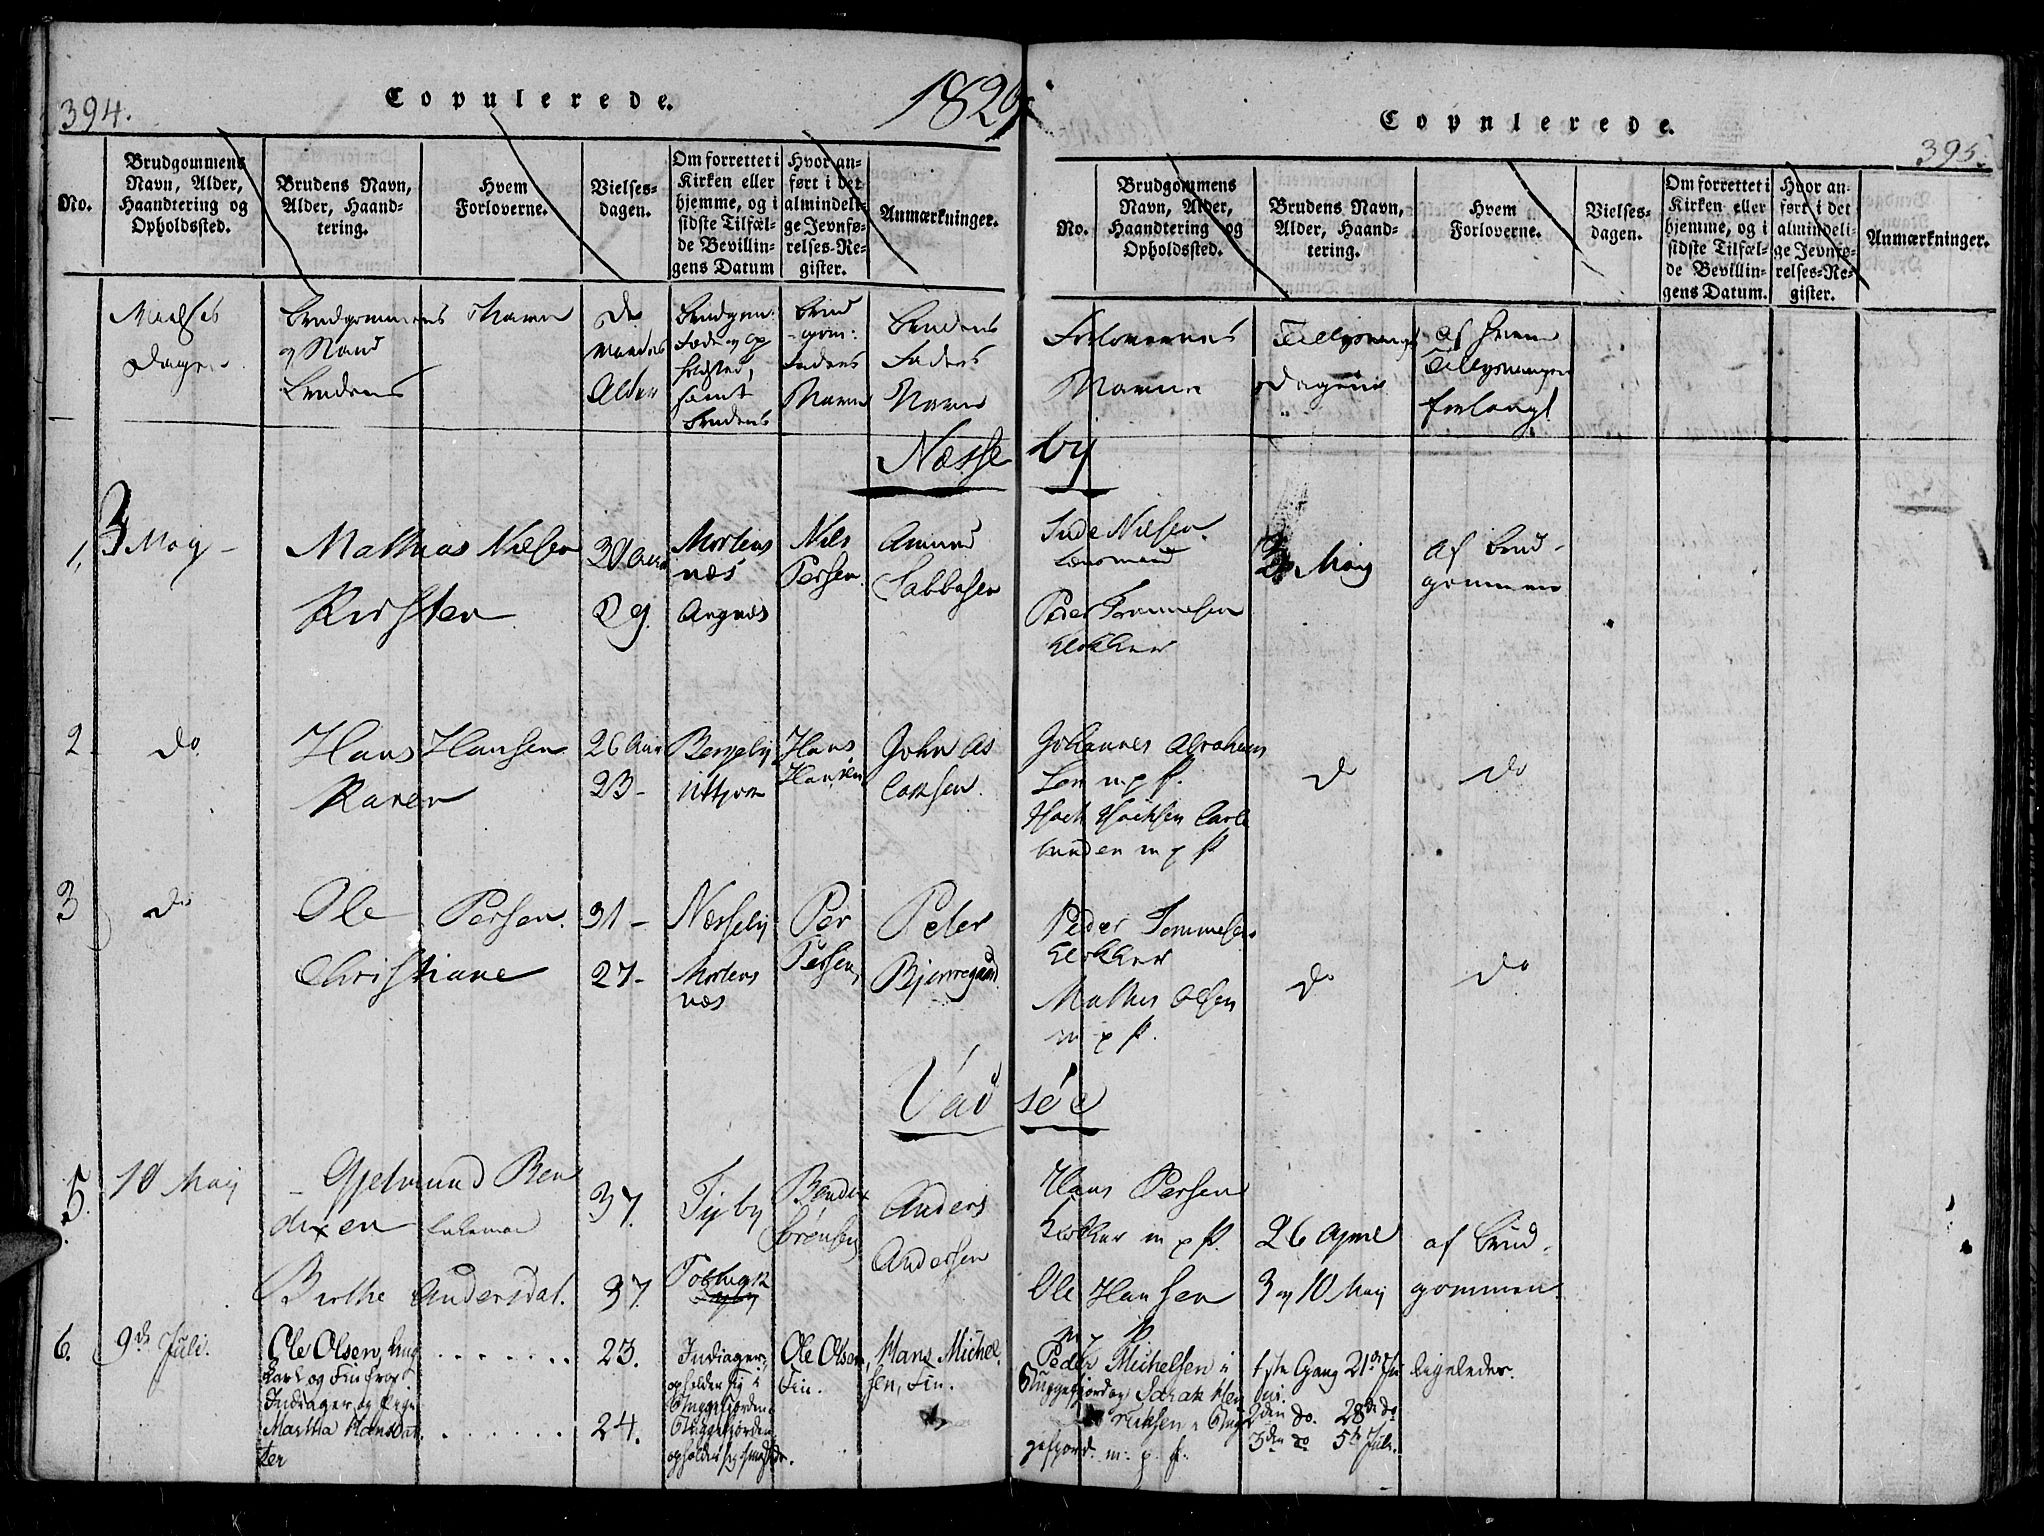 394.
Copulerede.
1829
No.
Brudgommens
Navn, Alder,
Haandtering og
Opholdssted.
Brudens Navn,
Alder, Haand-
tering.
Hvem
Forloverne.
Vielses-
dagen.
Om forrettet i
Kirken eller
hjemme, og i
sidste Tilfæl-
de Bevillin-
gens Datum
Hvor an-
ført i det
almindeli-
ge Jevnfø-
relses-Re-
gister.
Anmærkninger.
Vielses
Dagen
Brudgommens Navn
og Stand
Brudens
De
viedes
Alder
Brudgom:
Føde og Op
holdsted,
samt
Brudens
Brud
-gom:
Faders
Navn
Brudens
Faders
Navn
Næsse
1,
3 May -
Mathias Nilsen
Kirsten
30 Aar
29.
Mortens
næs
Angnæs
Nils
Persen
Amund
Sabbasen
2
do
Hans Hansen
Karen
26 Aar
23 -
Bergeby
Hans
Hansen
John As
laksen.
3
do
Ole Persen.
Christiane
31 -
27 -
Næsseby
Mortens
næs
Per
Persen,
Peter
Bjerregaard
Vad
5.
10 May
Gjelmund Ben
dixen
Birthe Andersdat.
37.
37.
Tyby
Bendix
Sørensen
Anders
Andersen
6.
9de Juli.
Ole Olsen, Ung
karl og Fin fra
Indiager og Pige
Martha Hansdat
ter
23.
24.
Indiager,
opholder sig i
Buggefjorden.
Buggefjorden,
opholder sig smsteds.
Ole Olsen,
Fin.
Hans Michel
sen, Fin.
Copulerede.
395.
No.
Brudgommens
Navn, Alder,
Haandtering og
Opholdssted.
Brudens Navn,
Alder, Haand-
tering.
Hvem
Forloverne.
Vielses-
dagen.
Om forrettet i
Kirken eller
hjemme, og i
sidste Tilfæl-
de Bevillin-
gens Datum.
Hvor an-
ført i det
almindeli-
ge Jevnfø-
relses-Re-
gister.
Anmærkninger.
Forlovernes
Navne
Tillysnings
Dagene
af hvem
Tillysningen
forlangt
by
Nilsen
Lensmand
Peder Tommesen
Klokker
3 May
af Brud-
gommen
Johannes Abraham
sen m p P.
m p P
do
do
Peder Tommesen
Klokker
Mathis Olsen
m p P.
do
do
søe
Hans Persen
Klokker m p P.
Ole Hansen
m p P.
26 April
3 og 10 May
af Brud-
gommen.
Peder Michelsen i
Buggefjord og Isak Hen
riksen i Bug
gefjord. m. p. P.
1ste Gang 21de Ju
ni.
2den do. 28de do
3den do 5te Juli.
ligeledes.